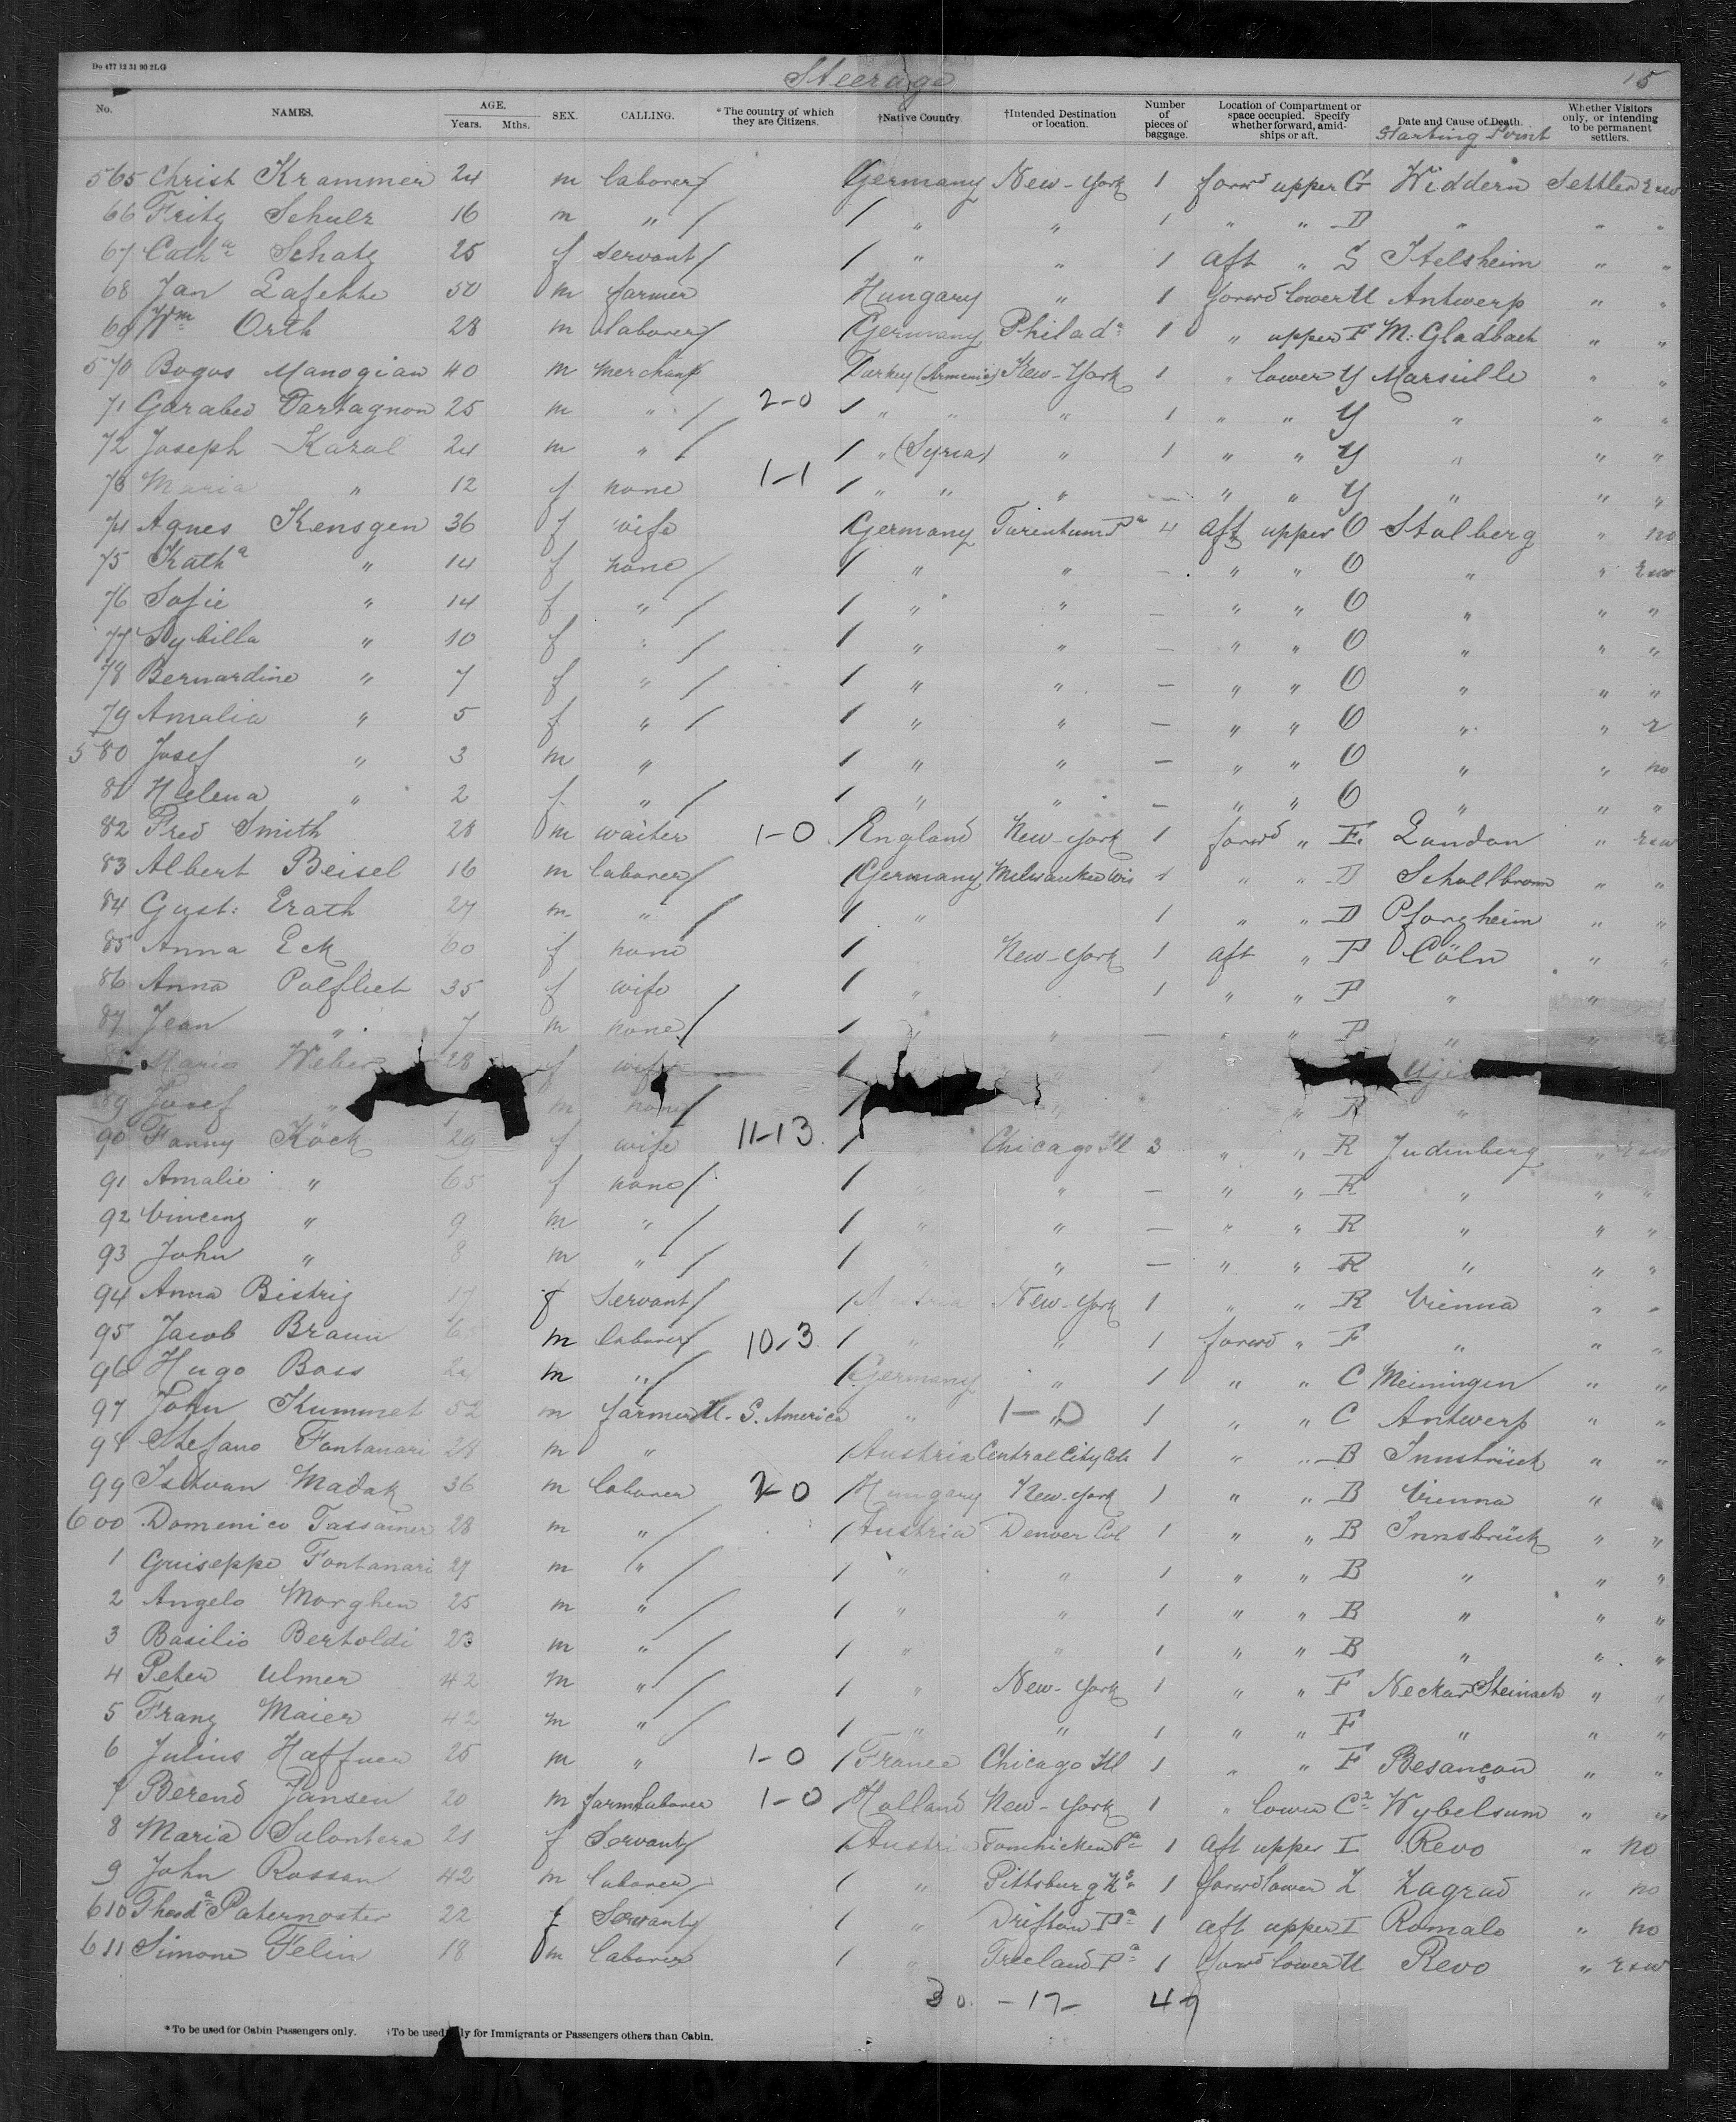 Do 477 12 31 90 2LG
Steerage 15
No. NAMES. AGE. Years. Mths. SEX. CALLING. *The country of which they are Citizens. †Native Country. †Intended Destination or location. Number of pieces of baggage. Location of Compartment or space occupied. Specify whether forward, amidships or aft. Date and Cause of Death. Starting Point Whether Visitors only, or intending to be permanent settlers.
565 Christ Krammer 24 m laborer / Germany New-York 1 forwd upper G Widdern Settler r&w
66 Fritz Schulz 16 m " / / " " 1 " " D " " "
67 Catha Schatz 25 f servant / / " " 1 aft " S Itelsheim " "
68 Jan Lafekte 50 m farmer Hungary " 1 forwd lower U Antwerp " "
69 Wm Orth 28 m laborer / Germany Philada 1 " upper F M: Gladbach " "
570 Bogos Manogian 40 m merchant Turkey (Armenia) New-York 1 " lower Y Marseille " "
71 Garabed Vartagnon 25 m " / 2-0 / " " " 1 " " Y " " "
72 Joseph Kazal 24 m " / / " (Syria) " 1 " " Y " " "
73 Maria " 12 f none 1-1 / " " " — " " Y " " "
74 Agnes Kensgen 36 f wife Germany Tarentum Pa 4 aft upper O Stalberg " no
75 Katha " 14 f none / / " " — " " O " " r&w
76 Sofie " 14 f " / / " " — " " O " " "
77 Sybilla " 10 f " / / " " — " " O " " "
78 Bernardine " 7 f " / / " " — " " O " " "
79 Amalia " 5 f " / / " " — " " O " " r
580 Josef " 3 m " / " " — " " O " " no
81 Helena " 2 f " / / " " — " " O " " "
82 Fred Smith 28 m waiter 1-0 England New-York 1 forwd " E. London " r&w
83 Albert Beisel 16 m laborer / Germany Milwaukee Wis 1 " " D Schollbronn " "
84 Gust: Erath 27 m " / / " 1 " " D Pforzheim " "
85 Anna Eck 60 f none / New-York 1 aft " P Cöln " "
86 Anna Palfliet 35 f wife / " 1 " " P " "
87 Jean " 7 m none / / " — " P " "
Maria Weber 28 f wife /
89 Josef " m none / / " " R "
90 Fanny Köck 29 f wife 11-13 / Chicago Ill 3 " " R Judenberg " r&w
91 Amalie " 65 f none / / " " — " " R " " "
92 Vincenz " 9 m " / / " " — " " R " " "
93 John " 8 m " / / " " — " " R " " "
94 Anna Bistriz 17 f Servant / / Austria New-York 1 " " R Vienna " "
95 Jacob Braun m laborer 10-3 / " " 1 forwd " F " " "
96 Hugo Bass m " / / Germany " 1 " " C Meiningen " "
97 John Kummet 52 m farmer U. S. America " 1-0 1 " " C Antwerp " "
98 Stefano Fontanari 28 m " / Austria Central City Col 1 " " B Innsbrück " "
99 Istvan Madak 36 m laborer 2-0 / Hungary New-York 1 " " B Vienna "
600 Domenico Tassainer 28 m " / / Austria Denver Col 1 " " B Innsbrück " "
1 Guiseppe Fontanari 27 m " / / " " 1 " " B " " "
2 Angelo Morghen 25 m " / / " " 1 " " B " " "
3 Basilio Bertoldi 23 m " / / " " 1 " " B " " "
4 Peter Ulmer 42 m " / / " New-York 1 " " F Neckar Steinach " "
5 Franz Maier 42 m " / / " " 1 " " F " " "
6 Julius Haffner 25 m " 1-0 / France Chicago Ill 1 " " F Besançon " "
7 Berend Jansen 20 m farmlaborer 1-0 / Holland New-York 1 " lower C2 Wybelsum " "
8 Maria Sulontera 21 f Servant / / Austria Tomhicken Pa 1 aft upper I Revo " no
9 John Rossan 42 m laborer / " Pittsburg Ks 1 forwd lower Z Zagrad " no
610 Theoda Paternoster 22 f Servant / / " Drifton Pa 1 aft upper I Romalo " no
611 Simone Felin 18 m laborer / " Freeland Pa 1 forwd lower U Revo " r&w
30. -17- 47
*To be used for Cabin Passengers only. †To be used only for Immigrants or Passengers others than Cabin.